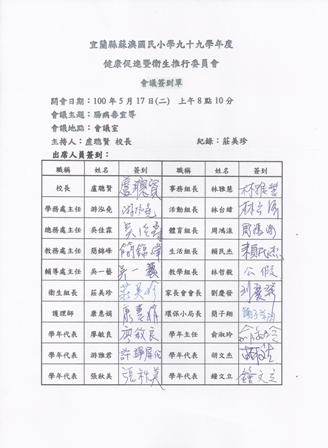 宜蘭縣蘇澳國民小學九十九學年度
健康促進暨衛生推行委員會
會議簽到單
開會日期：100年5月17日(二) 上午8點10分
會議主題：腸病毒宣導
會議地點：會議室
主持人：盧聰賢 校長 紀錄：莊美珍
出席人員簽到：
職稱 姓名 簽到 職稱 姓名 簽到
校長 盧聰賢 盧聰賢 事務組長 林雅慧 林雅慧
學務處主任 游泓堯 游泓堯 活動組長 林台緯 林台緯
總務處主任 吳佳霖 吳佳霖 體育組長 周鴻源 周鴻源
教務處主任 簡錦峰 簡錦峰 生活組長 賴民杰 賴民杰
輔導處主任 吳一藝 吳一藝 教學組長 林哲毅 公假
衛生組長 莊美珍 莊美珍 家長會會長 劉慶發 劉慶發
護理師 康惠娟 康惠娟 環保小局長 簡子翔 簡子翔
學年代表 廖敏良 廖敏良 學年主任 俞淑玲 俞淑玲
學年代表 游雅君 學年代表 胡文杰 胡文杰
學年代表 張秋美 張秋美 學年代表 鐘文立 鐘文立